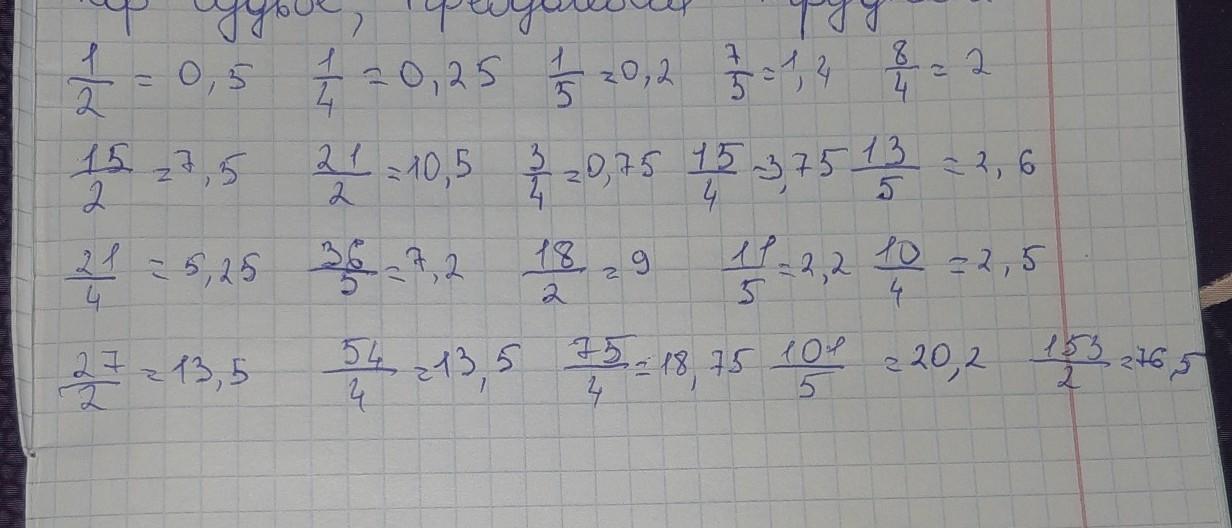 1/2 = 0,5 1/4 = 0,25 1/5 = 0,2 7/5 = 1,4 8/4 = 2
15/2 = 7,5 21/2 = 10,5 3/4 = 0,75 15/4 = 3,75 13/5 = 2,6
21/4 = 5,25 36/5 = 7,2 18/2 = 9 11/5 = 2,2 10/4 = 2,5
27/2 = 13,5 54/4 = 13,5 75/4 = 18,75 101/5 = 20,2 153/2 = 76,5